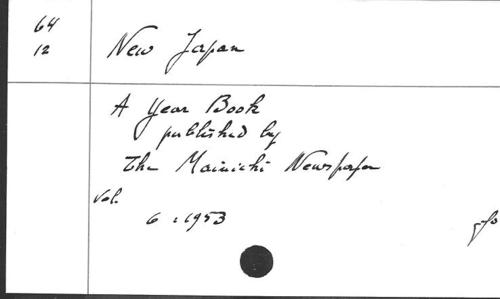 64
12
New Japan
A Year Book
published by
The Mainichi Newspaper
Vol.
6 : 1953